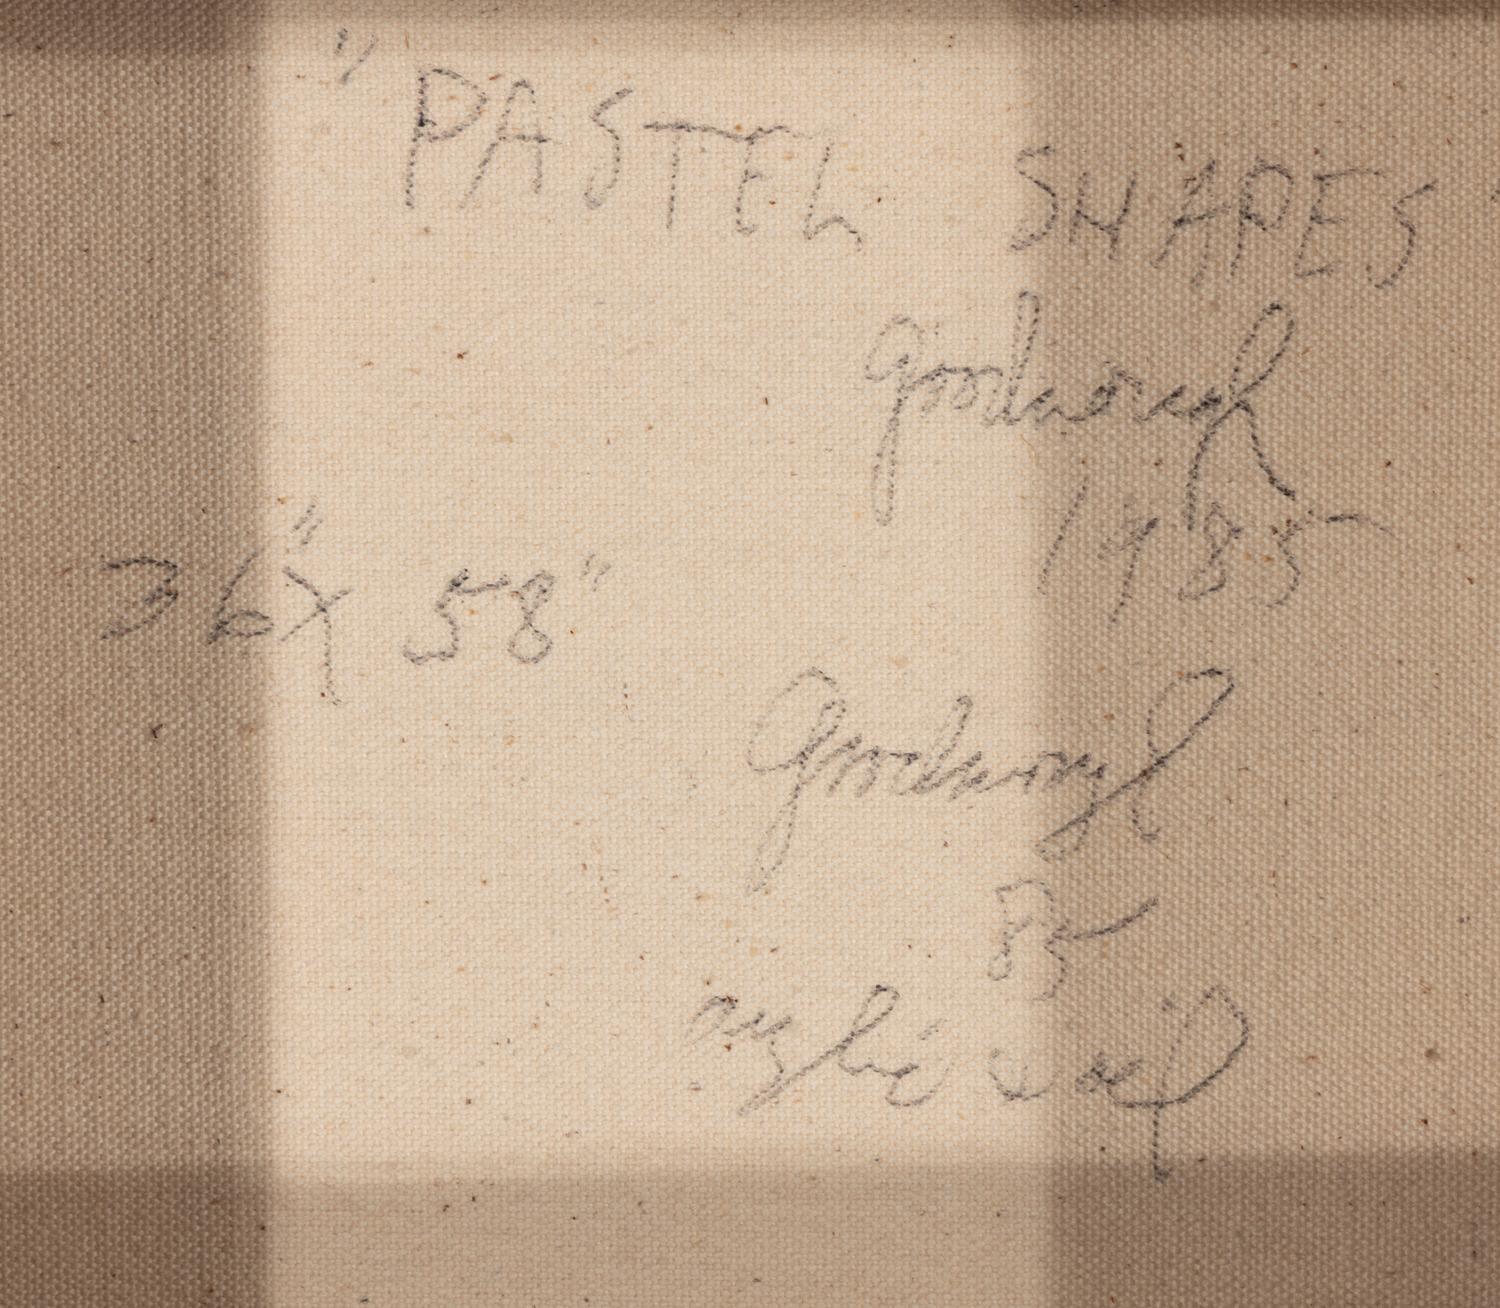 "PASTEL SHAPES"
goodnough
1985
36" X 58"
Goodnough
85